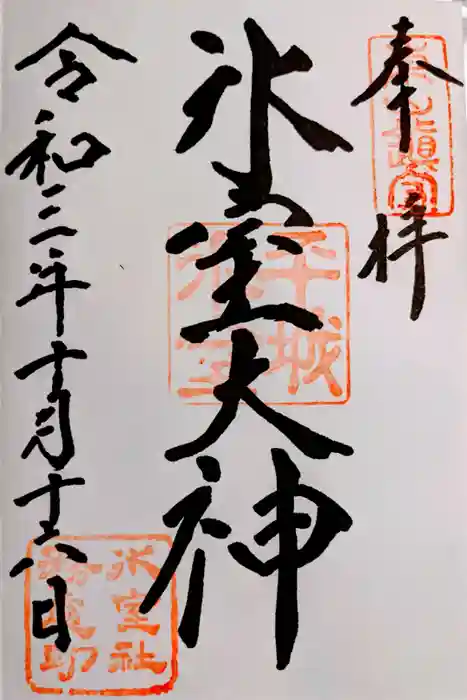 奉拝
氷室大神
令和三年十月十六日
平城
氷室
氷室社